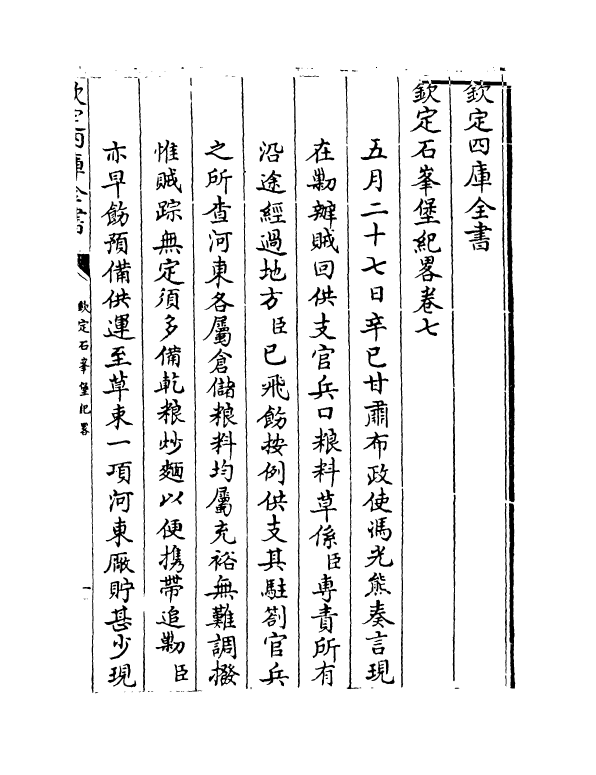 欽定四庫全書
欽定石峯堡紀畧卷七
五月二十七日辛巳甘肅布政使馮光熊奏言現
在勦辦賊回供支官兵口粮料草係臣專責所有
沿途經過地方臣已飛飭按例供支其駐劄官兵
之所查河東各屬倉儲粮料均屬充裕無難調撥
惟賊踪無定須多備乾粮炒麵以便携帶追勦臣
亦早飭預備供運至草束一項河東厰貯甚少現
欽定四庫全書
欽定石峯堡紀畧
一